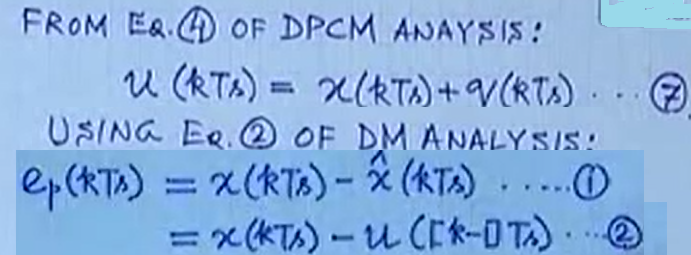 FROM EQ.④ OF DPCM ANAYSIS:
u (kTs) = x(kTs)+q(kTs) ... ⑦
USING EQ.② OF DM ANALYSIS:
eₚ(kTs) = x(kTs) - x̂(kTs) ......①
= x(kTs) - u([k-1]Ts) ...②